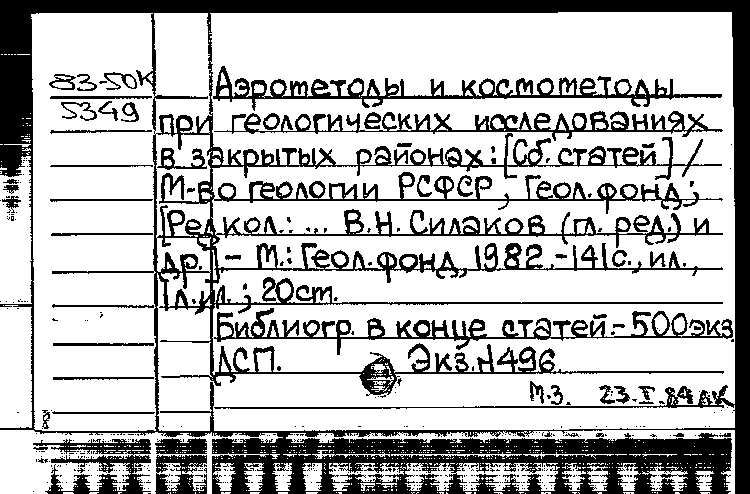 83-50К
5349
Аэрометоды и космометоды
при геологических исследованиях
в закрытых районах: [Сб. статей] /
М-во геологии РСФСР, Геол. фонд;
[Редкол.: ... В.Н. Силаков (гл. ред.) и
др.]. - М.: Геол. фонд, 1982. - 141 с., ил.,
1 л. ил.; 20 cm.
Библиогр. в конце статей. - 500 экз
ДСП. Экз. N 496.
М.З. 23.V.84